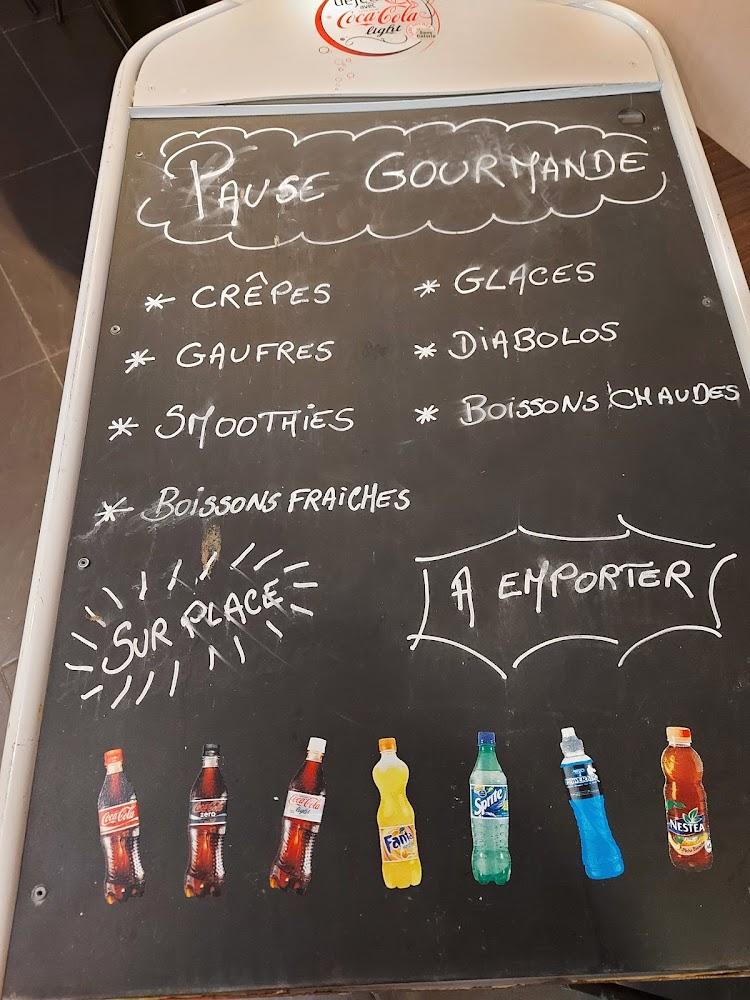 avec
Coca-Cola
light
PAUSE GOURMANDE
* CRÊPES
* GAUFRES
* SMOOTHIES
* BOISSONS FRAICHES
* GLACES
* DIABOLOS
* BOISSONS CHAUDES
SUR PLACE
A EMPORTER
Coca-Cola
Coca-Cola
zero
Coca-Cola
light
Fanta
Sprite
POWERADE
NESTEA